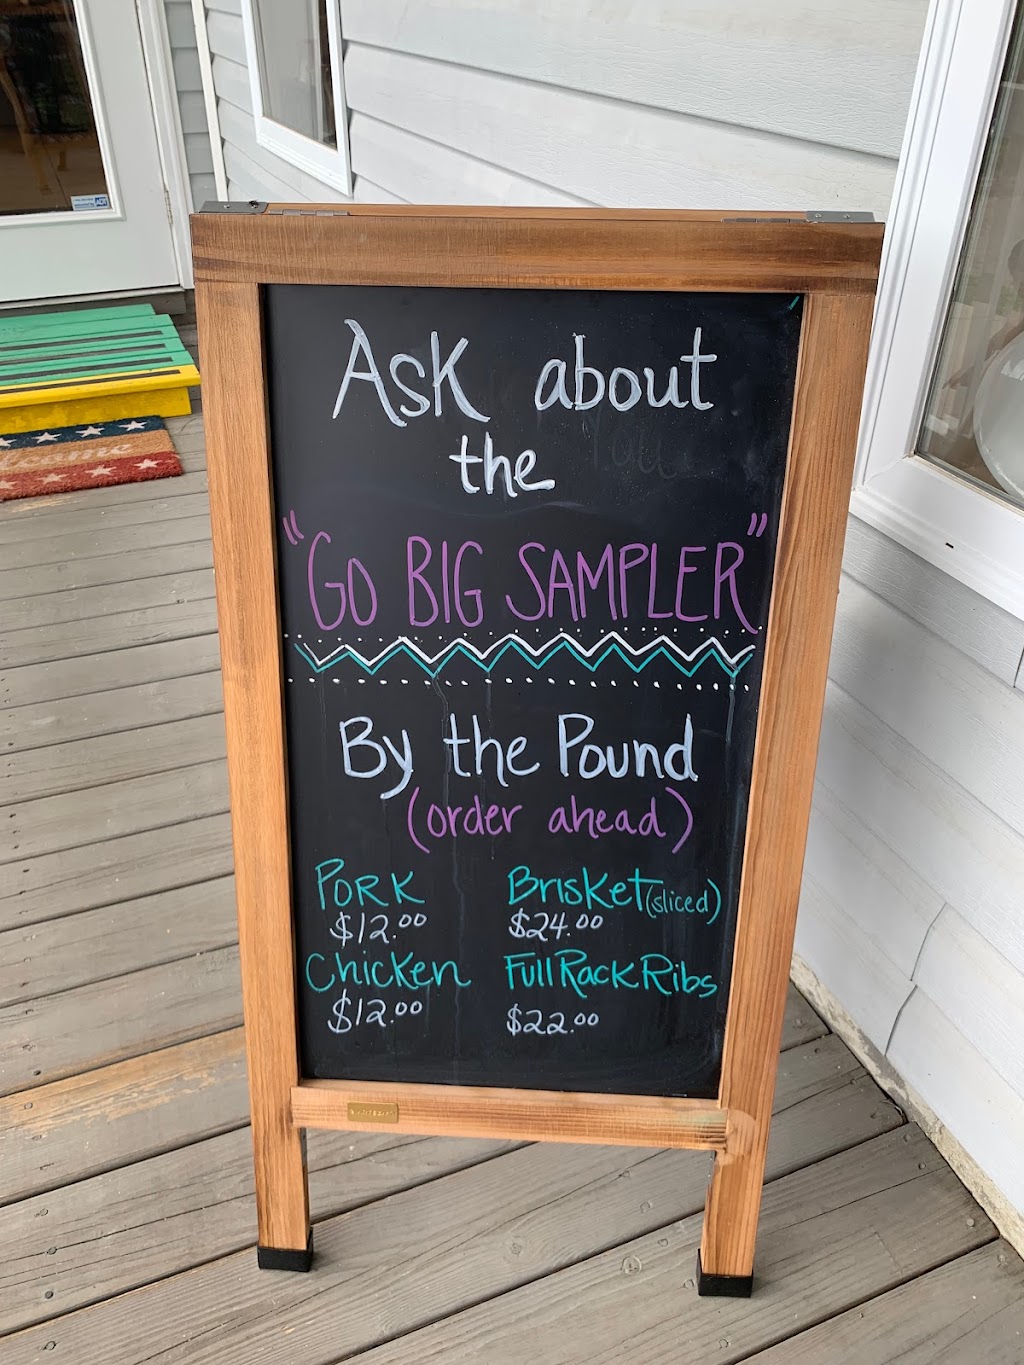 Ask about
the
"GO BIG SAMPLER"
By the Pound
(order ahead)
PORK
$12.00
Chicken
$12.00
BRISKET (sliced)
$24.00
Full Rack Ribs
$22.00
ADT